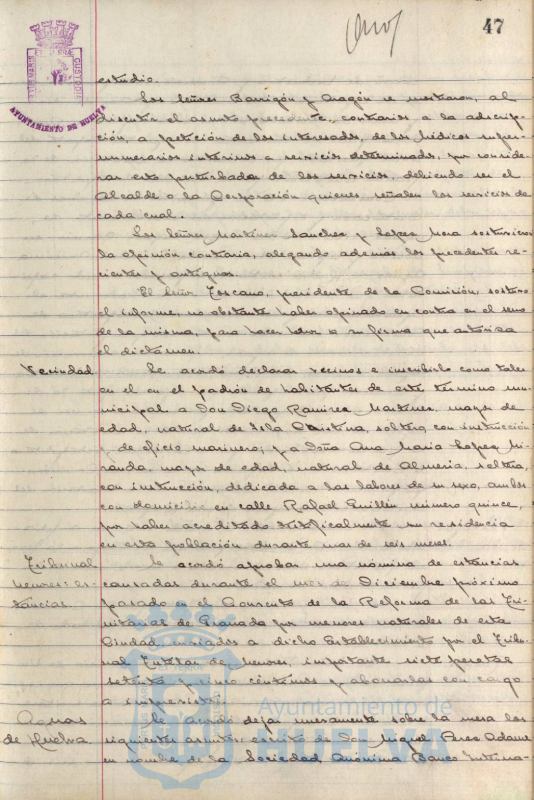 47
AYUNTAMIENTO DE HUELVA
estudio.
Los Señores Barrigón y Aragón se mostraron, al
discutir el asunto precedente, contrarios a la adscrip-
ción, a petición de los interesados, de los Médicos super-
numerarios interinos a servicios determinados, por conside-
rar esto perturbador de los servicios, debiendo ser el
Alcalde o la Corporación quienes señalen los servicios de
cada cual.
Los Señores Martínez Sanchez y Lopez Mora sostuvieron
la opinión contraria, alegando además los precedentes re-
cientes y antiguos.
El Señor Toscano, presidente de la Comisión, sostuvo
el informe, no obstante haber opinado en contra en el seno
de la misma, para hacer honor a su firma que autoriza
el dictámen.
Vecindad. Se acordó declarar vecinos e inscribirlo como tales
en el en el padrón de habitantes de este término mu-
nicipal a Don Diego Ramirez Martinez, mayor de
edad, natural de Isla Cristina, soltero, con instrucción
y de oficio marinero; y a Doña Ana Maria Lopez Mi-
randa, mayor de edad, natural de Almeria, soltera,
con instrucción, dedicada a las labores de su sexo, ambos
con domicilio en calle Rafael Guillén número quince,
por haber acreditado su residencia
en esta población durante mas de seis meses.
Tribunal Se acordó aprobar una nómina de estancias
menores: es- causadas durante el mes de Diciembre próximo
tancias. pasado en el Convento de la Reforma de las Tri-
nitarias de Granada por menores naturales de esta
Ciudad, enviados a dicho Establecimiento por el Tribu-
nal Tutelar de Menores, importante siete pesetas
setenta y cinco céntimos y abonarlas con cargo
a imprevistos.
Aguas Se acordó dejar nuevamente sobre la mesa los
de Huelva. siguientes asuntos: escrito de Don Miguel Perez Adame
en nombre de la Sociedad Anónima Banco Interna-
Ayuntamiento de
HUELVA